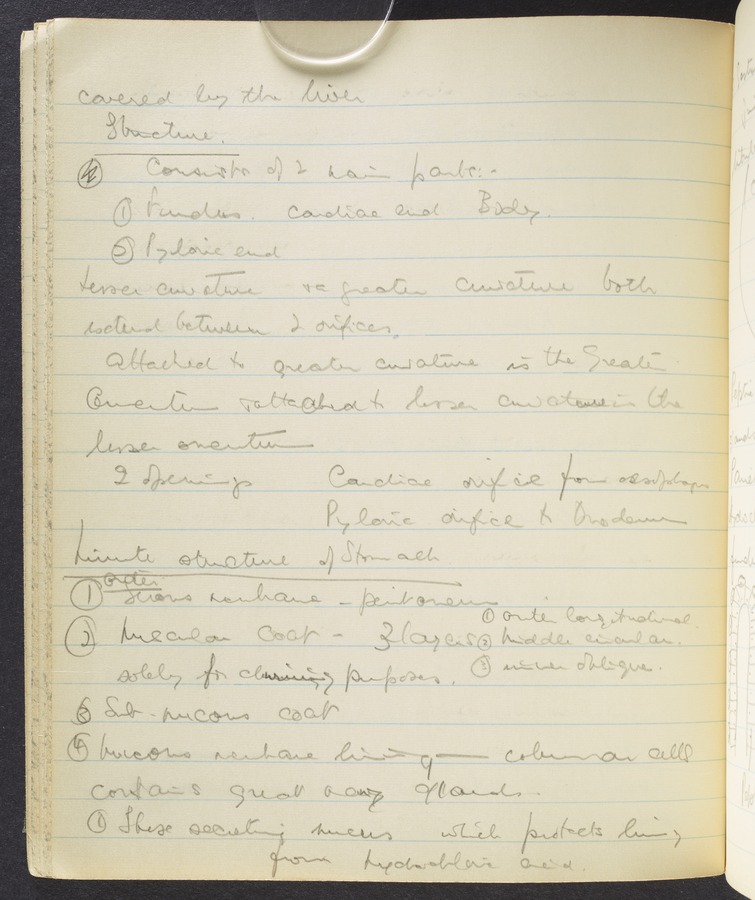 covered by the liver
Structure.
Consists of 2 main parts:-
① Fundus. cardiac end Body.
② Pyloric end
Lesser curvature & greater curvature both
extend between 2 orifices.
Attached to greater curvature is the Greater
Omentum & attached to lesser curvature is the
lesser omentum
2 openings Cardiac orifice from oesophagus
Pyloric orifice to Duodenum
Minute structure of Stomach.
① outer Serous membrane - peritoneum
② Muscular Coat - 3 layers ① outer longitudinal.
② middle circular.
③ inner oblique.
solely for churning purposes.
③ Sub-mucous coat
④ Mucous membrane lining — columnar cells
contains great many glands.
① Those secreting mucus which protects lining
from hydrochloric acid.